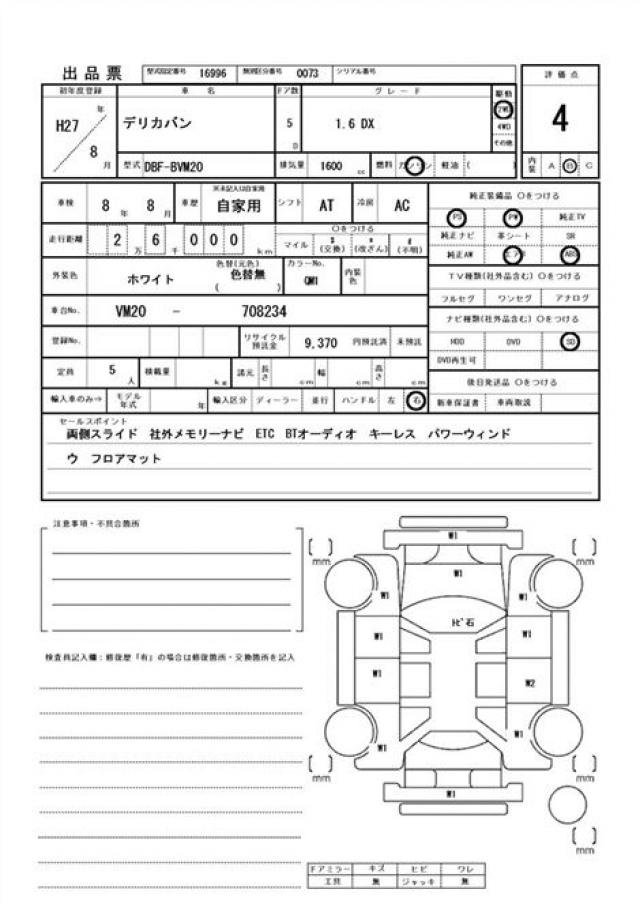 出品票 型式指定番号 16996 類別区分番号 0073 シリアル番号
初年度登録 車名 ドア数 グレード 駆動 評価点
H27 年 8 月 デリカバン 5 D 1.6 DX 2WD 4WD その他 4
型式 DBF-BVM20 排気量 1600 cc 燃料 ガソリン 軽油 ( ) 内装 A B C
車検 8 年 8 月 車歴 ※未記入は自家用 自家用 シフト AT 冷房 AC 純正装備品 〇をつける
PS PW 純正TV
走行距離 2 万 6 千 0 0 0 km 〇をつける マイル $ (交換) * (改ざん) # (不明)
純正ナビ 革シート SR
純正AW エアB ABS
外装色 ホワイト 色替(元色) 色替無 ( ) カラーNo. QM1 内装色
TV種類(社外品含む) 〇をつける
フルセグ ワンセグ アナログ
車台No. VM20 - 708234
ナビ種類(社外品含む) 〇をつける
登録No. リサイクル預託金 9,370 円預託済 未預託
HDD DVD SD
DVD再生可
定員 5 人 積載量 kg 諸元 長さ cm 幅 cm 高さ cm
後日発送品 〇をつける
輸入車のみ⇒ モデル年式 年 輸入区分 ディーラー 並行 ハンドル 左 右 新車保証書 車両取説
セールスポイント
両側スライド 社外メモリーナビ ETC BTオーディオ キーレス パワーウィンド
ウ フロアマット
注意事項・不具合箇所
検査員記入欄:修復歴「有」の場合は修復箇所・交換箇所を記入
W1
[ ] mm W1 [ ] mm
W1 W1
トビ石
W1 W1
W1 W2
W1 W1
[ ] mm [ ] mm
W1
[ ] mm
ドアミラー キズ ヒビ ワレ
工具 無 ジャッキ 無